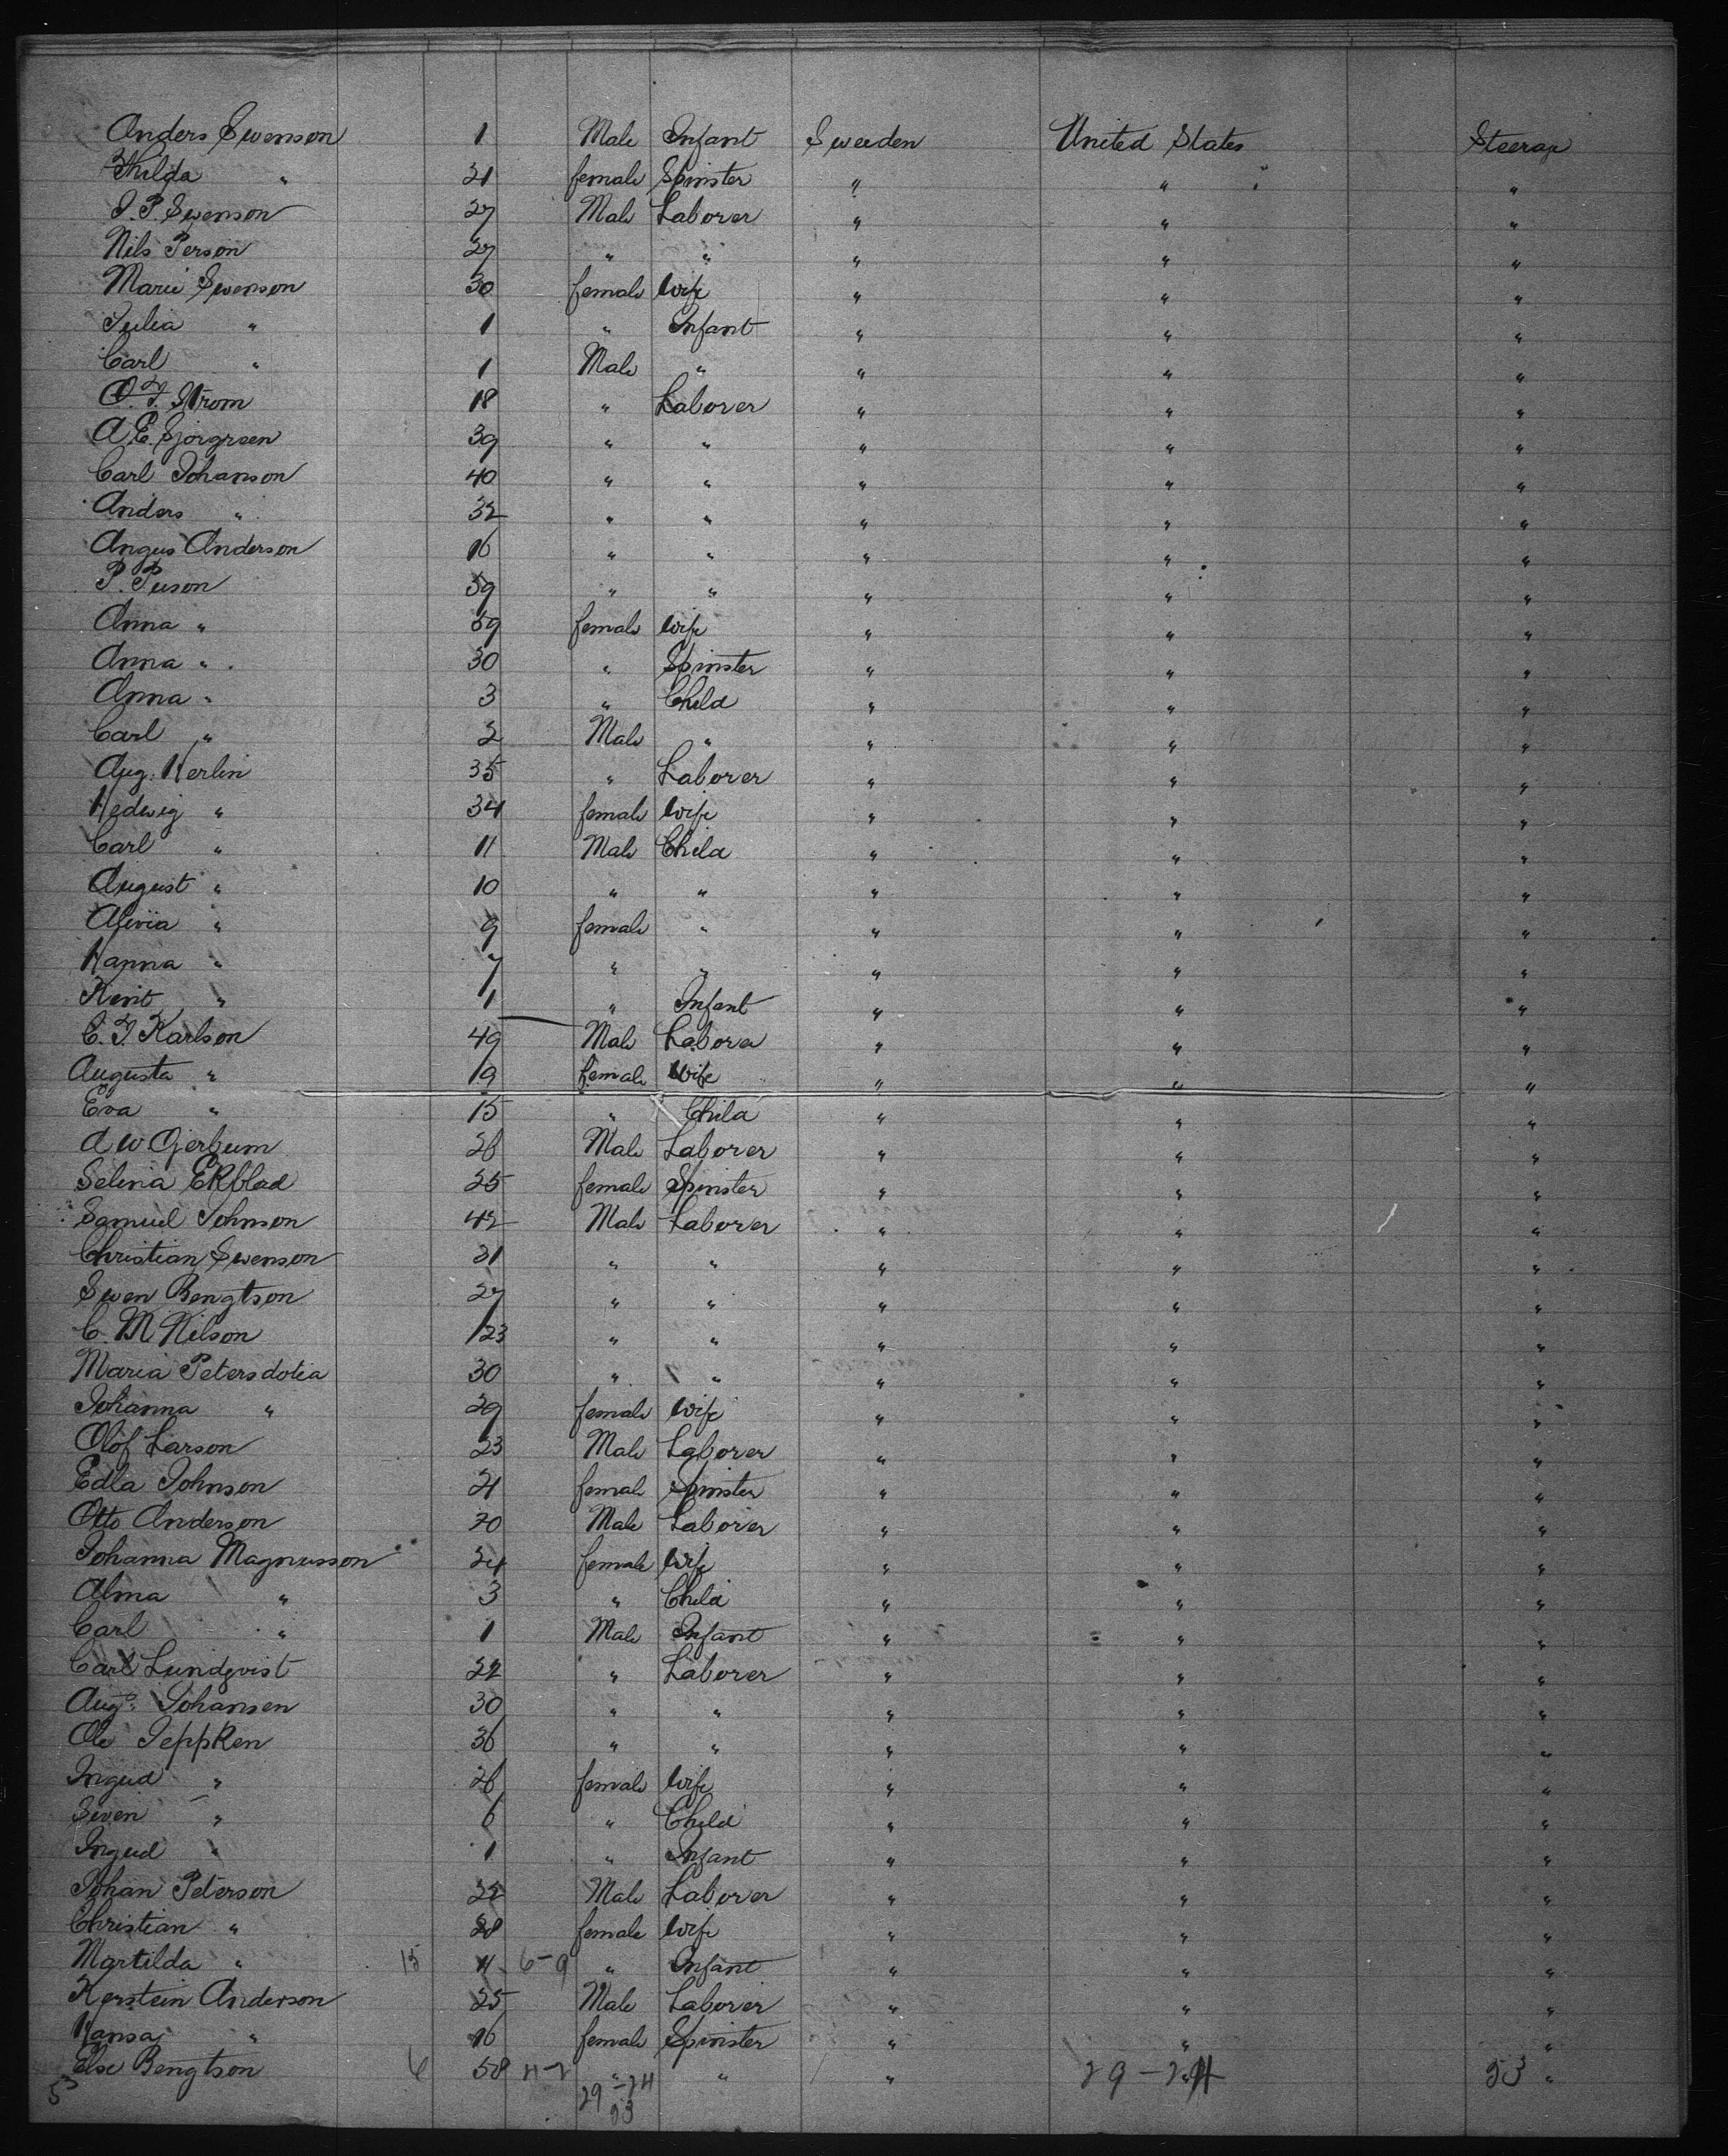 Anders Swenson 1 Male Infant Sweeden United States Steerage
Thilda " 21 female Spinster " " "
I. P. Swenson 27 Male Laborer " " "
Nils Person 27 " " " " "
Marie Swenson 30 female Wife " " "
Julia " 1 " Infant " " "
Carl " 1 Male " " " "
O. F. Strom 18 " Laborer " " "
A. E. Sjorgreen 39 " " " " "
Carl Johanson 40 " " " " "
Anders " 32 " " " " "
Angus Anderson 16 " " " " "
P. Person 39 " " " " "
Anna " 39 female Wife " " "
Anna " 30 " Spinster " " "
Anna " 3 " Child " " "
Carl " 2 Male " " " "
Aug. Herlin 35 " Laborer " " "
Hedwig " 34 female Wife " " "
Carl " 11 Male Child " " "
August " 10 " " " " "
" 9 female " " " "
Hanna " 7 " " " " "
" 1 " Infant " " "
C. F. Karlson 49 Male Laborer " " "
Augusta " 19 female Wife " " "
Eva " 15 " Child " " "
A W 26 Male Laborer " " "
Selina Ekblad 25 female Spinster " " "
Samuel Johnson 42 Male Laborer " " "
Christian Swenson 21 " " " " "
Swen Bengtson 27 " " " " "
C. M Nilson 23 " " " " "
Maria Petersdotia 30 " " " " "
Johanna " 29 female Wife " " "
Olof Larson 23 Male Laborer " " "
Edla Johnson 21 female Spinster " " "
Otto Anderson 20 Male Laborer " " "
Johanna Magnusson 24 female Wife " " "
Alma " 3 " Child " " "
Carl " 1 Male Infant " " "
Carl Lundqvist 22 " Laborer " " "
Aug. Johansen 30 " " " " "
Ole Jeppken 36 " " " " "
Ingud " 26 female Wife " " "
Swen " 6 " Child " " "
Ingud " 1 " Infant " " "
Johan Peterson 22 Male Laborer " " "
Christian " 28 female Wife " " "
Martilda " 15 11 6-9 " Infant " " "
Kerstein Anderson 25 Male Laborer " " "
Hansa " 16 female Spinster " " "
Else Bengtson 6 58 11-2 " " " " 29-24 53 "
53 29-24
53